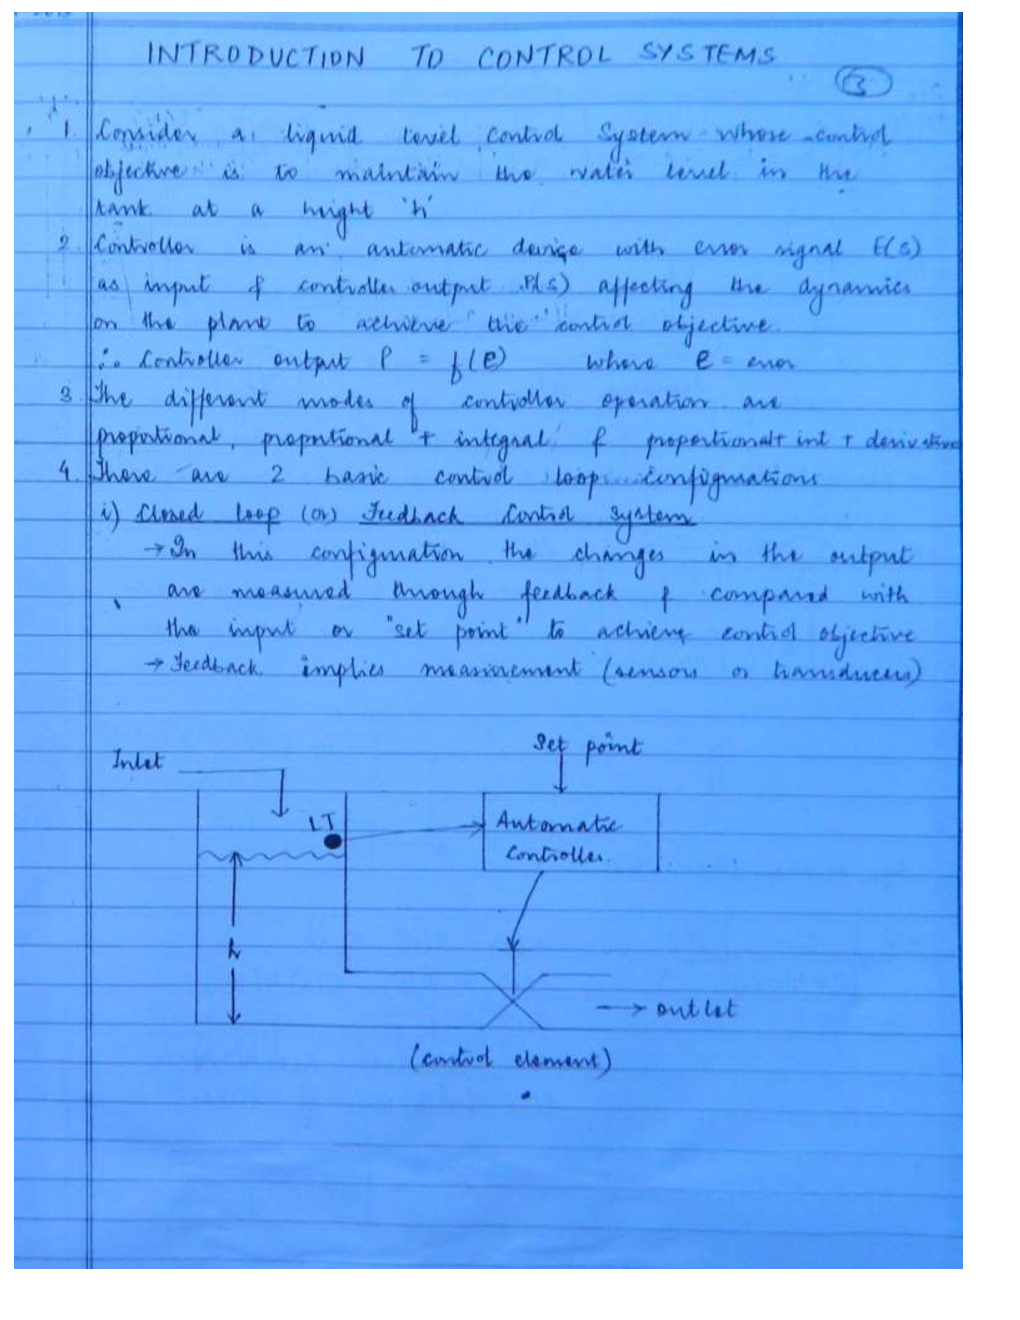 INTRODUCTION TO CONTROL SYSTEMS
3
1. Consider a liquid level control System whose control
objective is to maintain the water level in the
tank at a height 'h'
2. Controller is an automatic device with error signal E(s)
as input & controller output P(s) affecting the dynamics
on the plant to achieve the control objective.
∴ Controller output P = f(e) where e = error
3. The different modes of controller operation are
propotional, propotional + integral & proportional + int + derivative
4. There are 2 basic control loop configurations
i) Closed loop (or) Feedback Control System
→ In this configuration the changes in the output
are measured through feedback & compared with
the input or "set point" to achieve control objective
→ Feedback implies measurement (sensors or transducers)
Set point
Inlet
LT
Automatic
Controller.
h
→ outlet
(control element)